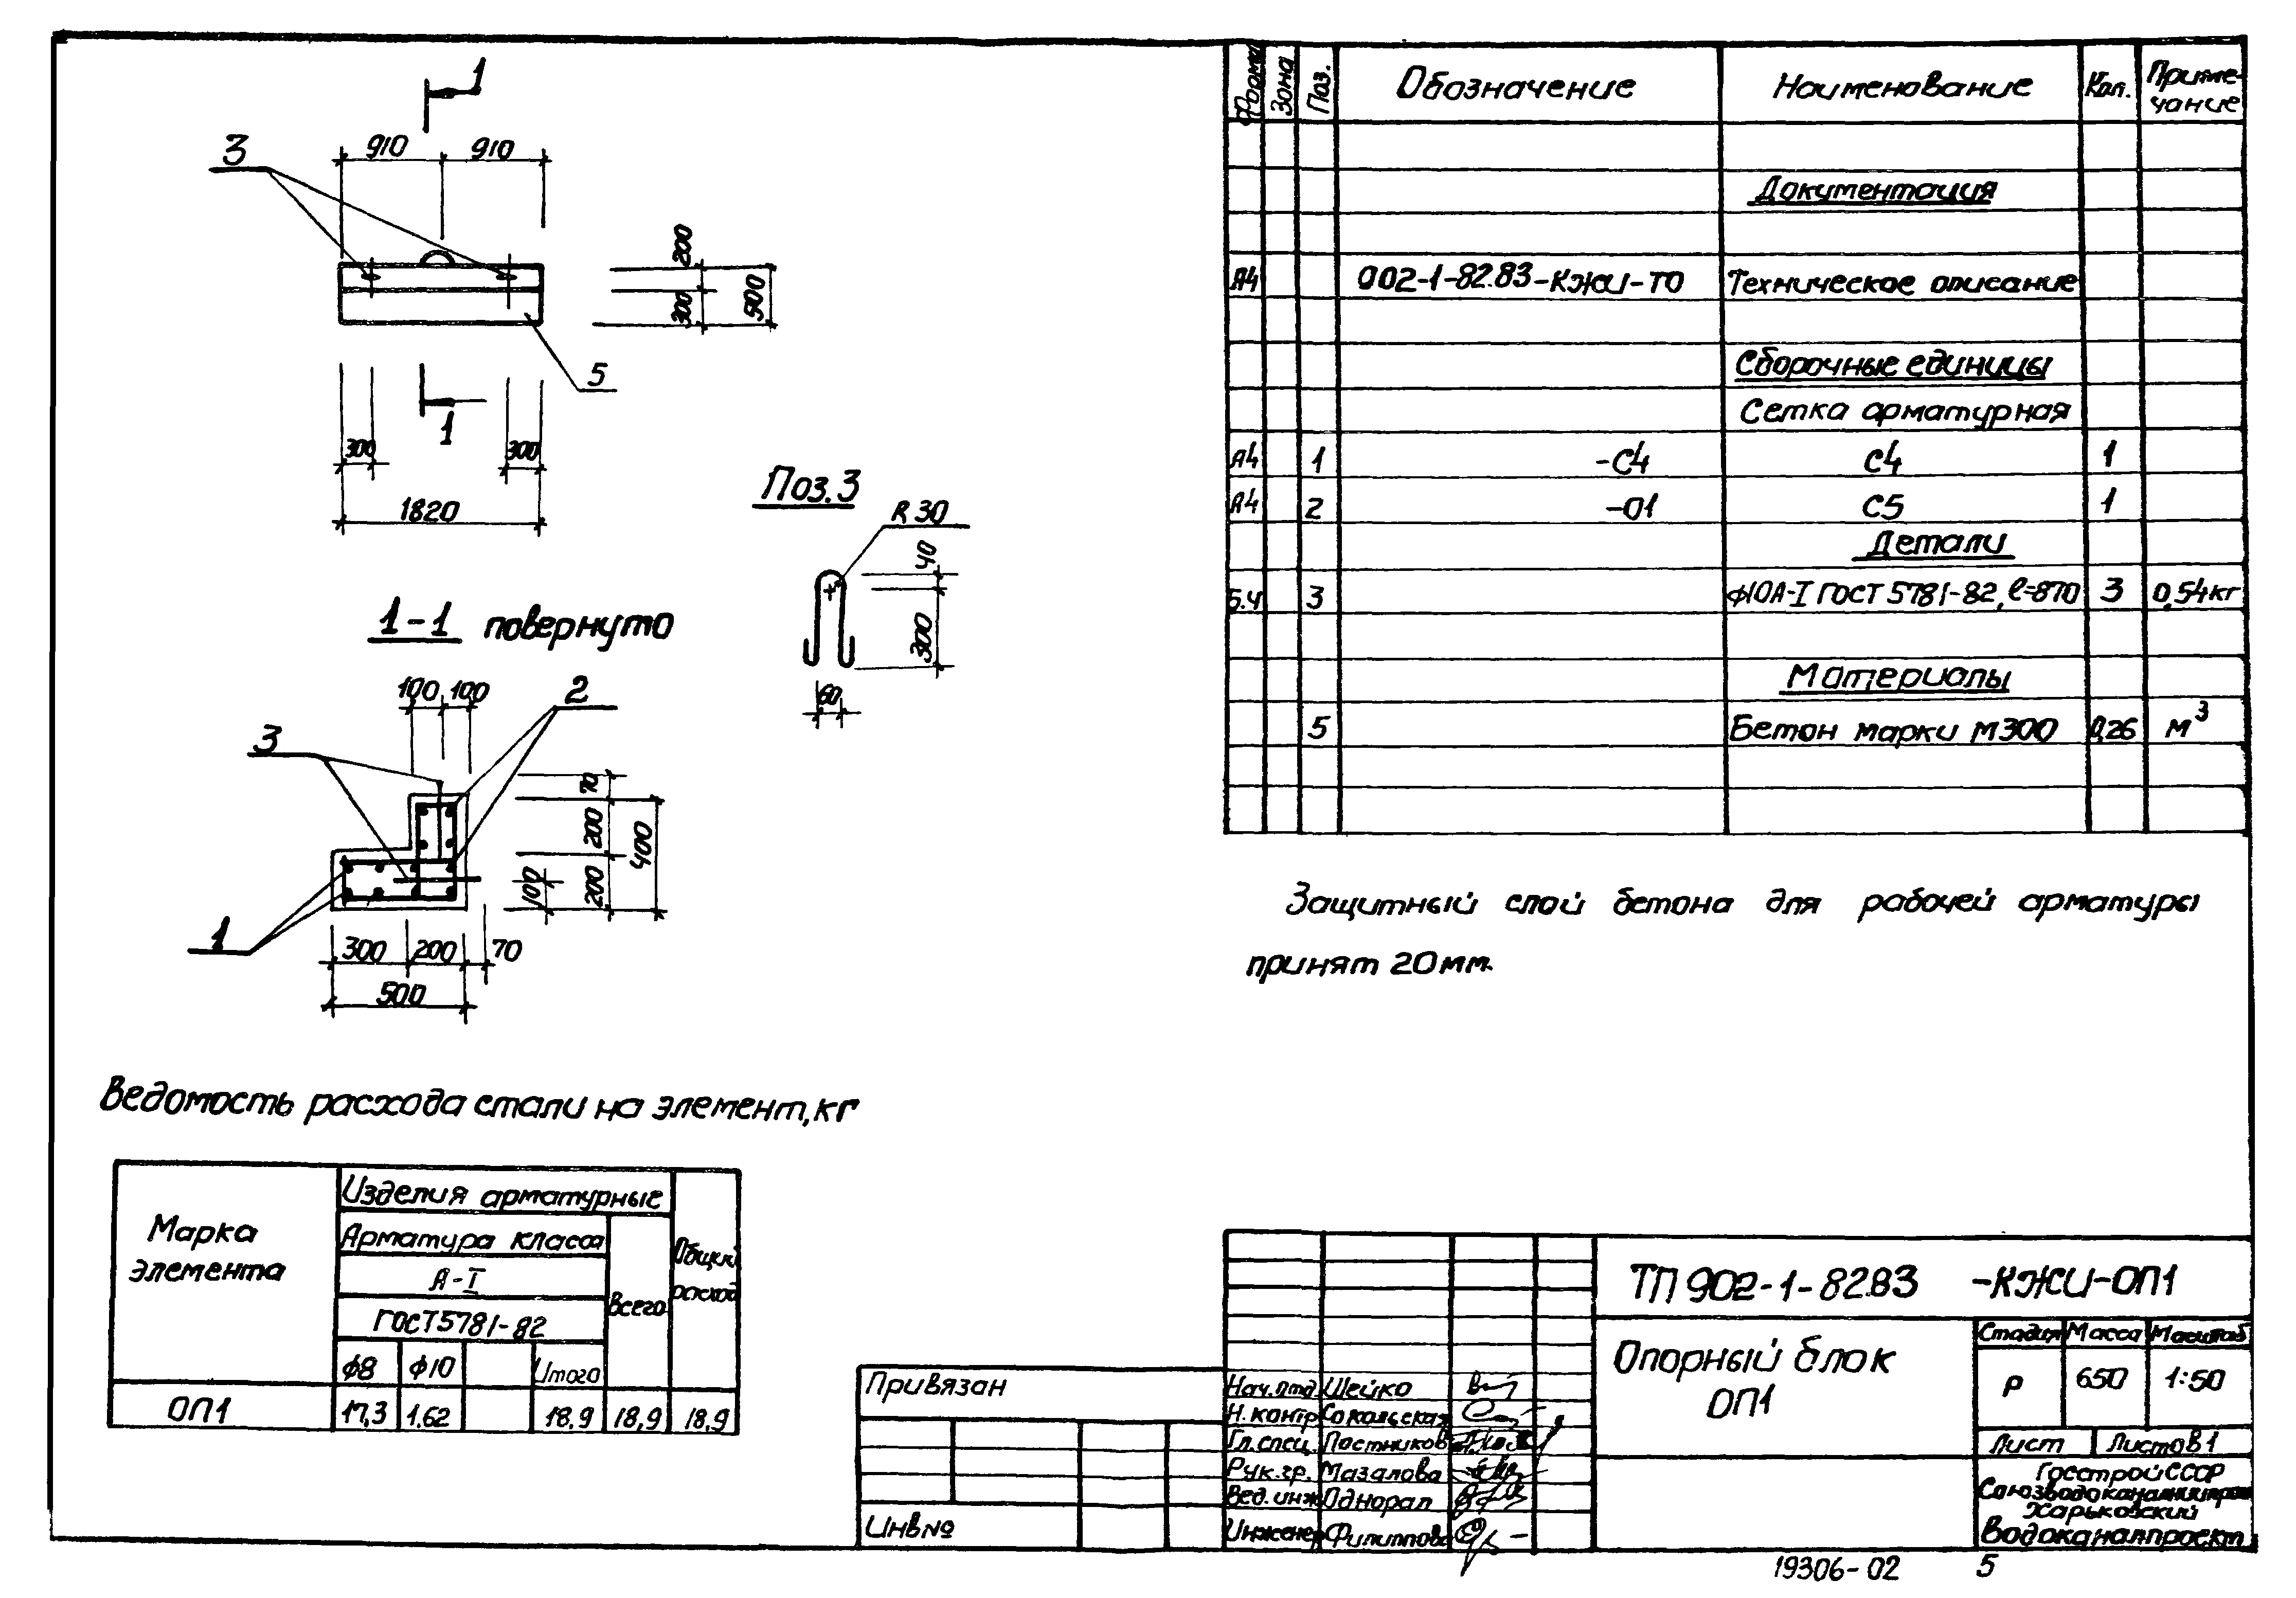 1
910 910
3
200
300
500
5
1
300 300
1820
Поз. 3
R 30
40
300
60
1-1 повернуто
100 100
2
3
70
200
400
100
200
1
300 200 70
500
Ведомость расхода стали на элемент, кг
Марка элемента
Изделия арматурные
Арматура класса
А-I
ГОСТ 5781-82
Всего
Общий расход
ф8 ф10 Итого
ОП1 17,3 1,62 18,9 18,9 18,9
Формат Зона Поз. Обозначение Наименование Кол. Приме-
чание
Документация
А4 902-1-82.83-КЖИ-ТО Техническое описание
Сборочные единицы
Сетка арматурная
А4 1 -С4 С4 1
А4 2 -01 С5 1
Детали
Б.ч 3 ф10А-I ГОСТ 5781-82, ℓ=870 3 0,54кг
Материалы
5 Бетон марки М300 0,26 м³
Защитный слой бетона для рабочей арматуры
принят 20мм.
ТП 902-1-82.83 -КЖИ-ОП1
Опорный блок
ОП1
Стадия Масса Масштаб
Р 650 1:50
Лист Листов 1
Госстрой СССР
Союзводоканалниипроект
Харьковский
Водоканалпроект
Привязан
Инв№
Нач. отд Шейко
Н. контр Сокольская
Гл. спец. Постников
Рук. гр. Мазалова
Вед. инж Однорал
Инженер Филиппова
19306-02 5